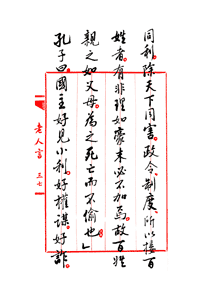 同利。除天下同害。政令、制度、所以接百
姓者。有非理如豪末。必不加焉。故百姓
親之如父母。為之死亡而不偷也」
孔子曰。國主好見小利。好權謀。好詐。
老人言 三七